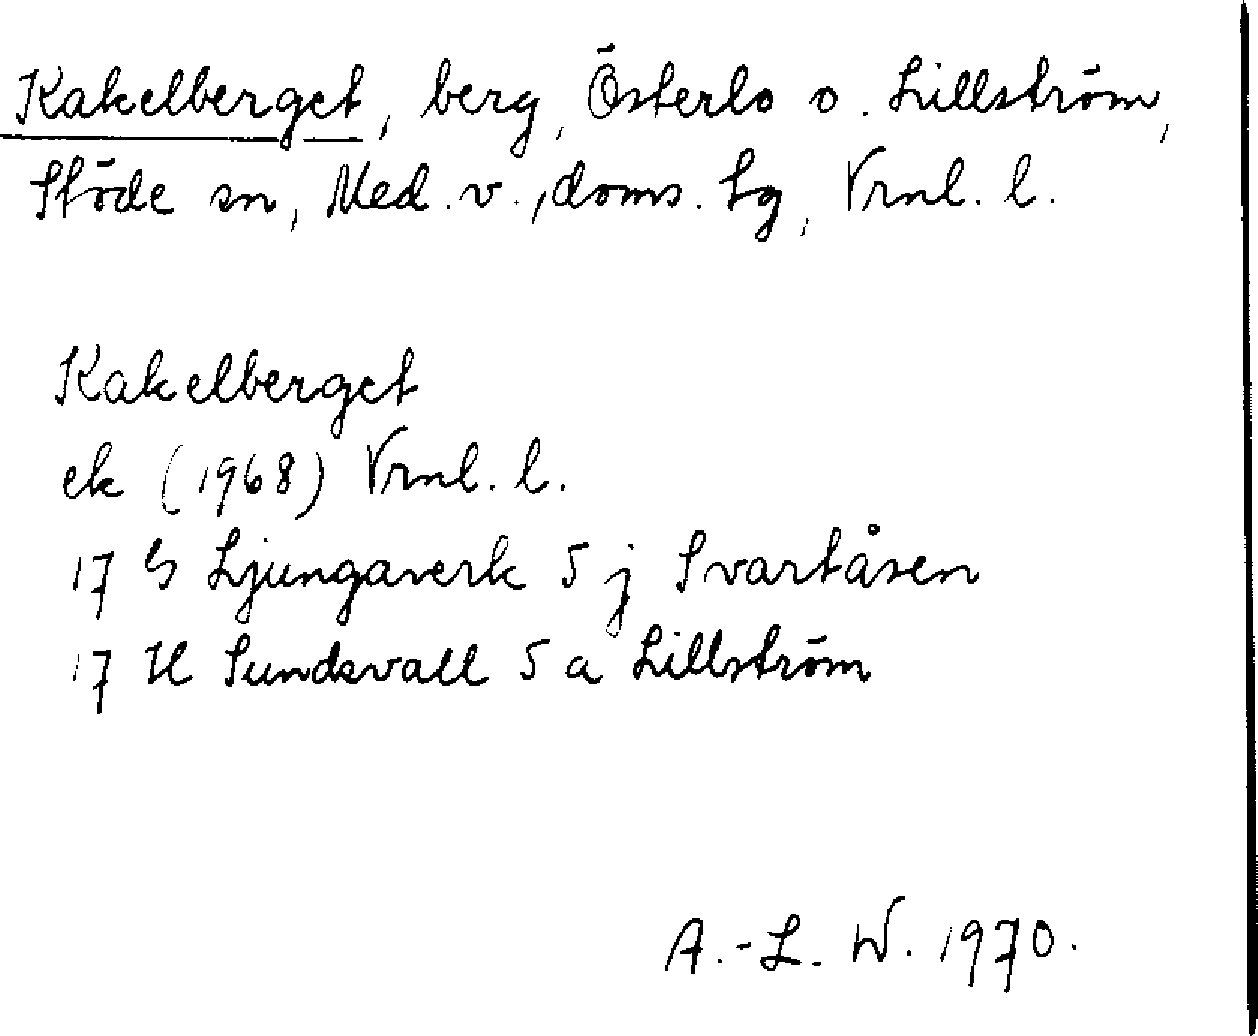 Kakelberget, berg, Österlo o. Lillström,
Stöde sn, Med. v., doms. lg, Vrnl. l.
Kakelberget
ek (1968) Vrnl. l.
17 G Ljungaverk 5 j Svartåsen
17 H Sundsvall 5 a Lillström
A.-L. W. 1970.